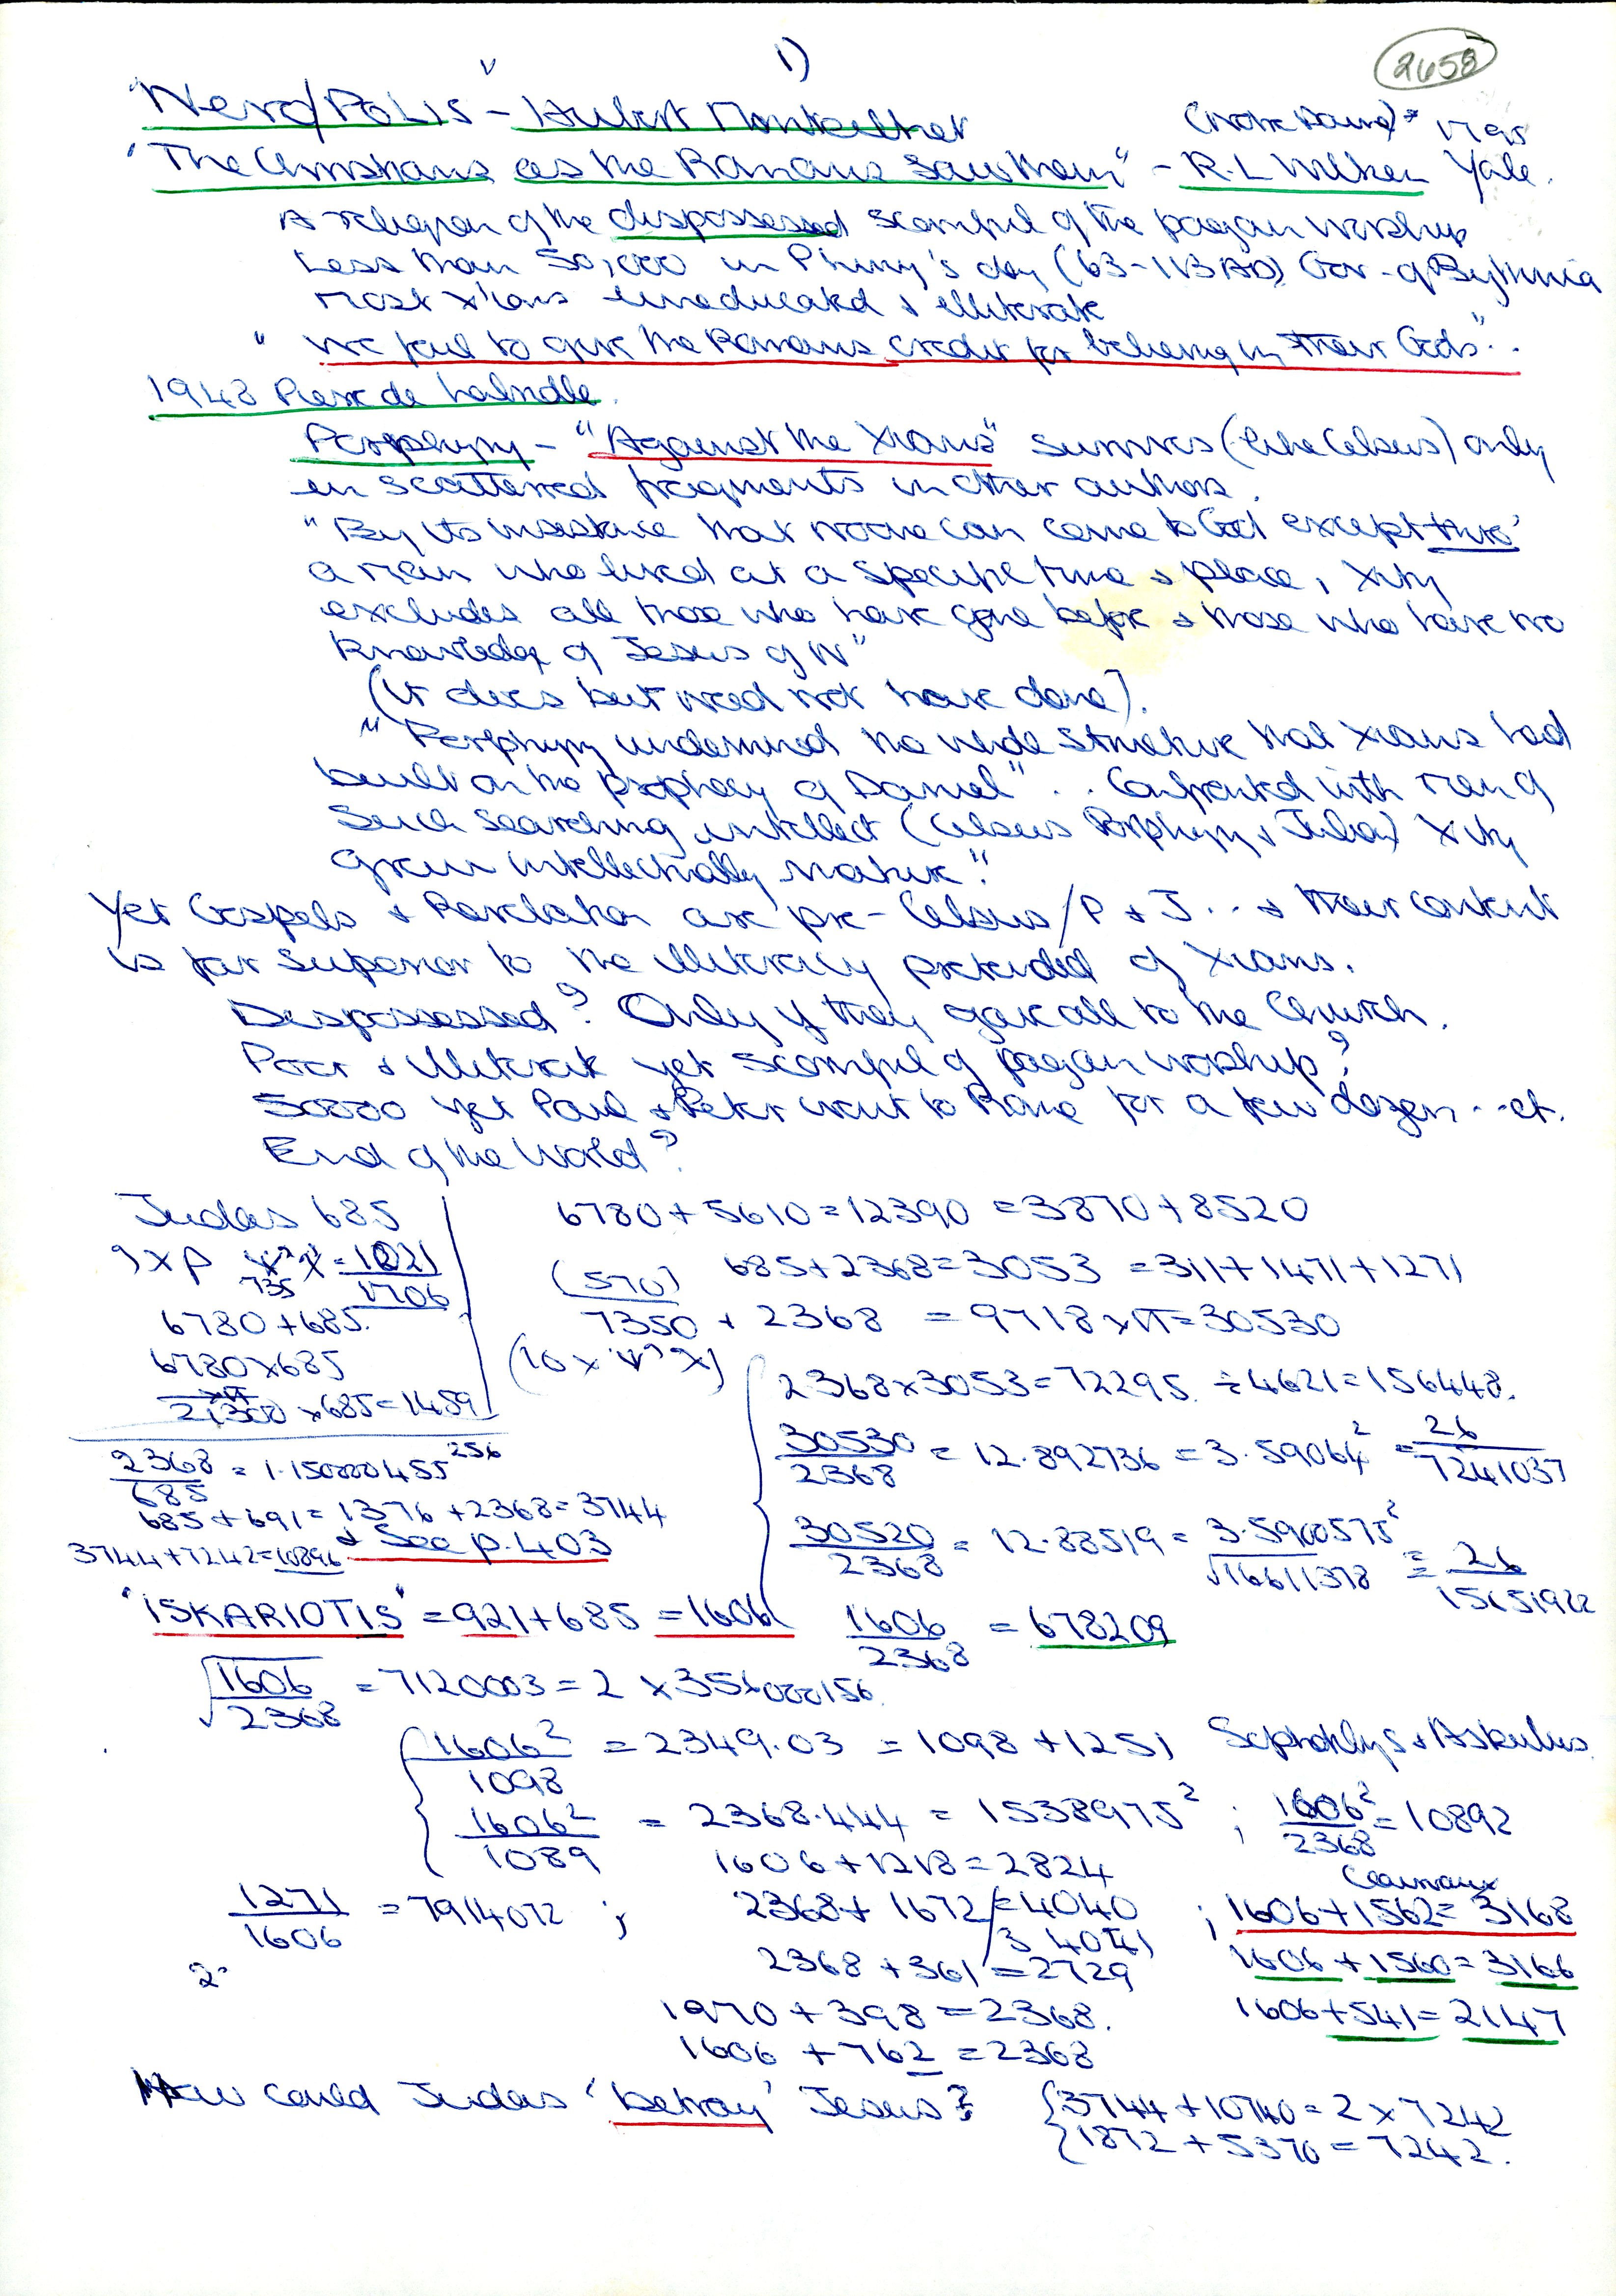 1)
2658
"Nero/POLIS" - Hubert Monteilhet
(Notre Dame) 1795
"The Christians as the Romans saw them" - R.L Wilken Yale.
A religion of the dispossessed scornful of the pagan worship
Less than 50,000 in Pliny's day (63-113 AD) Gov. of Bythinia
Most X'ians uneducated & illiterate
"We fail to give the Romans credit for believing in their Gods"..
1948 Pierre de Labriolle
Porphyry - "Against the Xians" survives (like Celsus) only
in scattered fragments in other authors.
"By its insistence that no one can come to God except thro'
a man who lived at a specific time & place, Xity
excludes all those who have gone before & those who have no
knowledge of Jesus of N"
(It does but need not have done).
"Porphyry undermined the whole structure that Xians had
built on the prophecy of Daniel".. Confronted with men of
such searching intellect (Celsus Porphyry & Julian) Xity
grew intellectually mature."
Yet Gospels & Revelation are pre-Celsus/P & J... & their content
is far superior to the illiteracy pretended of Xians.
Dispossessed? Only if they gave all to the Church.
Poor & illiterate yet scornful of pagan worship?
50000 yet Paul & Peter went to Rome for a few dozen...et.
End of the World?
Judas 685
6780 + 5610 = 12390 = 3870 + 8520
= 1021
735
1706
685 + 2368 = 3053 = 311 + 1471 + 1271
6780 + 685.
(570)
7350 + 2368 = 9718 x π = 30530
6780 x 685
21300 x 685 = 1459
2368 x 3053 = 72295. ÷ 4621 = 156448.
30530/2368 = 12.892736 = 3.59064² = 26/7241037
2368/685 = 1.150000455 256
685 + 691 = 1376 + 2368 = 3744
3744 + 7242 = 10896 & See p.403
30520/2368 = 12.88519 = 3.5900575²/√16611378 = 26/15651922
"ISKARIOTIS" = 921 + 685 = 1606
1606/2368 = 678209
√1606/2368 = 7120003 = 2 x 356000156
1606²/1098 = 2349.03 = 1098 + 1251 Sophoklys & Askulus
1606²/1089 = 2368.444 = 1538975² ; 1606²/2368 = 10892
1606 + 1218 = 2824
1271/1606 = 7914072 ;
2368 + 1672 = 4040
; 1606 + 1562 = 3168
2368 + 361 = 2729
1606 + 1560 = 3166
1970 + 398 = 2368.
1606 + 541 = 2147
1606 + 762 = 2368
How could Judas 'betray' Jesus?
3744 + 10740 = 2 x 7242
1872 + 5370 = 7242.